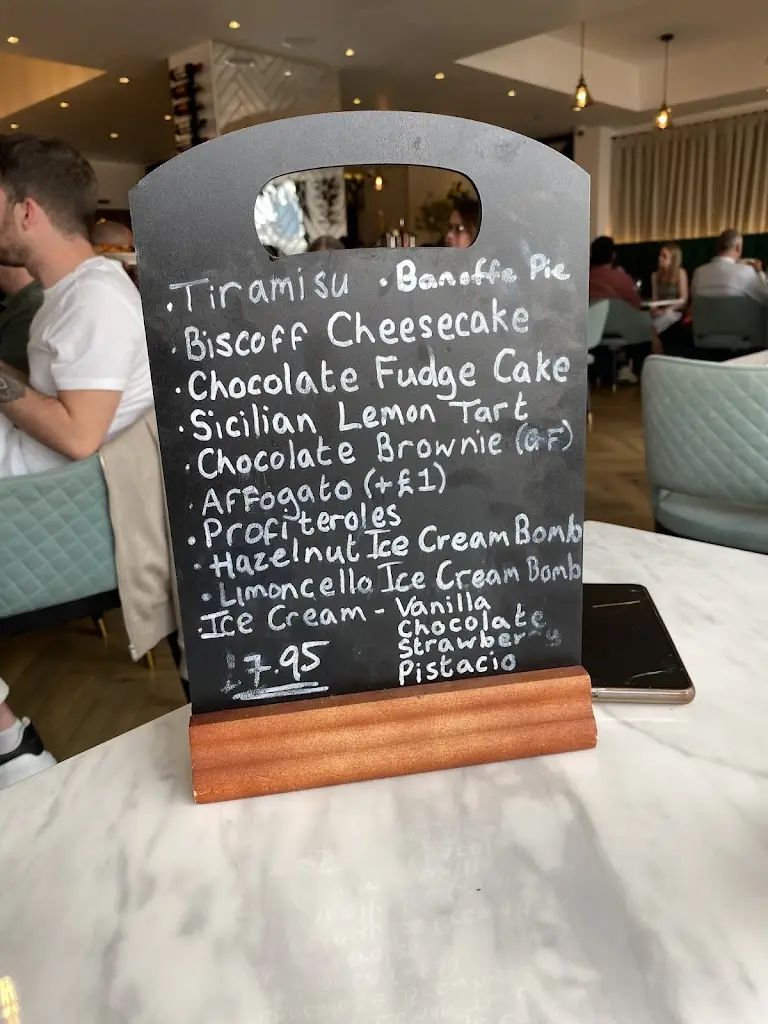 ·Tiramisu ·Banoffe Pie
·Biscoff Cheesecake
·Chocolate Fudge Cake
·Sicilian Lemon Tart
·Chocolate Brownie (GF)
·Affogato (+£1)
·Profiteroles
·Hazelnut Ice Cream Bomb
·Limoncello Ice Cream Bomb
·Ice Cream - Vanilla
Chocolate
Strawberry
Pistacio
£7.95